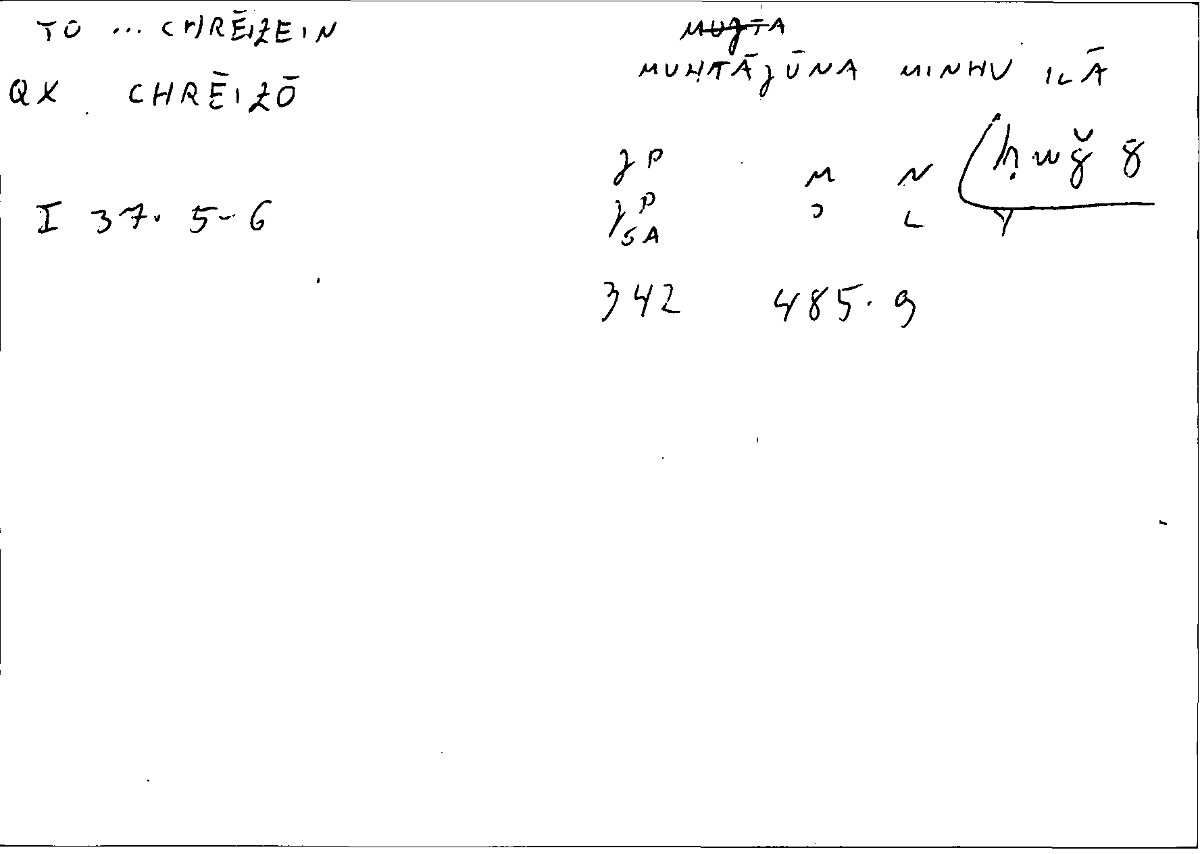 TO ... CHRĒIZEIN
QX CHRĒIZŌ
I 37. 5-6
MUJTA
MUḤTĀJŪNA MINHU ILĀ
JP M N ḥuǧǧ
JP SA D L Y
342 485.9